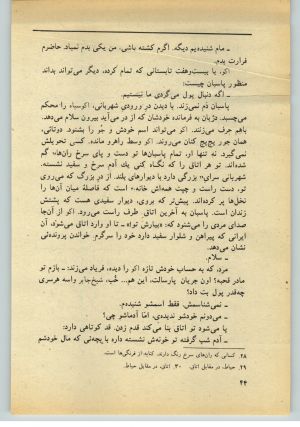 ـ مام شنیده‌یم دیگه. اگرم کشته باشی، من یکی بدم نمیاد. حاضرم
فرارت بدم.
اکو، با بیست‌وهفت تابستانی که تمام کرده، دیگر می‌تواند بداند
منظور پاسبان چیست:
ـ اگه دنبال پول می‌گردی ما نیستیم.
پاسبان دم نمی‌زند. با دیدن در ورودی شهربانی، اکوسیاه را محکم
می‌چسبد. دژبان به فرمانده خودشان که از در می‌آید بیرون سلام می‌دهد.
باهم حرف می‌زنند. اکو می‌تواند اسم خودش و خُو را بشنود. دوتائی،
همان جور پچ‌پچ کنان می‌روند. اکو وسط راهرو مانده. کسی تحویلش
نمی‌گیرد. نه تنها او، تمام پاسبان‌ها تو دست و پای سرخ ران‌ها²⁸ گم
شده‌اند. تو هر اتاقی را که نگاه کنی یک آدم سرخ و سفید نشسته.
شهربانی سرای²⁹ بزرگی دارد با دیوارهای بلند. از در بزرگ که می‌روی
تو، دست راست و چپت همه‌اش خانه³⁰ است که فاصلهٔ میان آن‌ها را
نخل‌ها پر کرده‌اند. پیش‌تر که بروی، دیوار سفیدی هست که پشتش
زندان است. پاسبان به آخرین اتاقی طرف راست می‌رود. اکو از آن‌جا
صدای مردی را می‌شنود که: «بیارش تو!» ـ تا او وارد اتاق می‌شود، آن
ایرانی که پیراهن و شلوار سفید دارد خود را سرگرم خواندن پرونده‌ئی
نشان می‌دهد.
ـ سلام.
مرد، که به حساب خودش تازه اکو را دیده، فریاد می‌زند: ـ بازم تو
مادر قحبه؟ اون جریان پارسالت، این هم... خُب، شیخ‌جابر واسه هرسری
چه‌قدر پول بت داد؟
ـ نمی‌شناسمش. فقط اسمشو شنیدم.
ـ می‌دونم خودشو ندیده‌ی، اما آدماشو چی؟
پا می‌شود تو اتاق بنا می‌کند قدم زدن. قد کوتاهی دارد:
ـ آدم شب گرفته تو خونه‌ش نشسته داره با بچه‌ئی که مال خودشم
۲۸. کسانی که ران‌های سرخ رنگ دارند. کنایه از فرنگی‌ها است.
۲۹. حیاط. ۳۰. اتاق، در مقابل حیاط.
۴۴